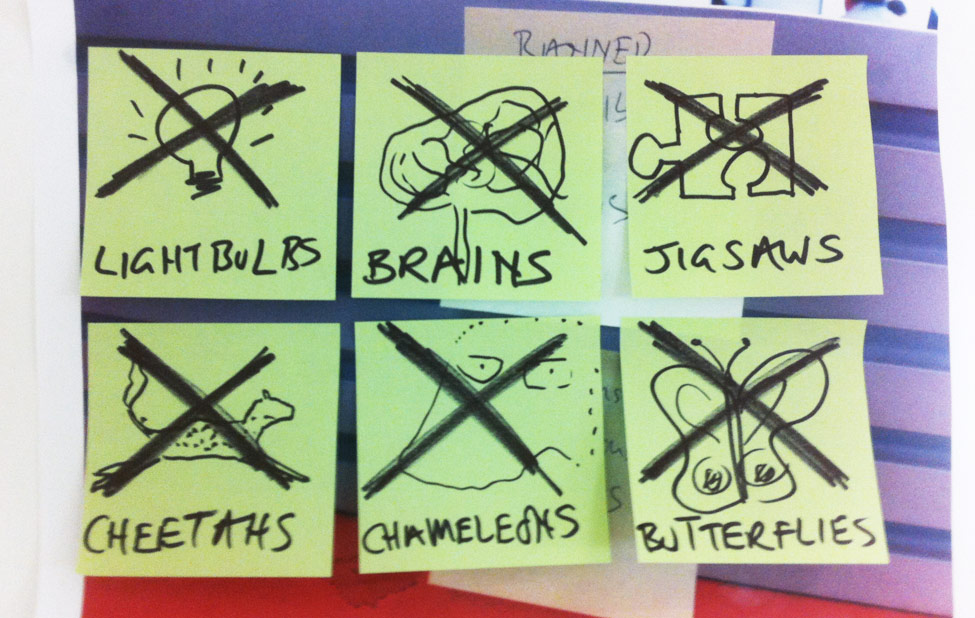 BANNED
LIGHTBULBS
BRAINS
JIGSAWS
CHEETAHS
CHAMELEONS
BUTTERFLIES